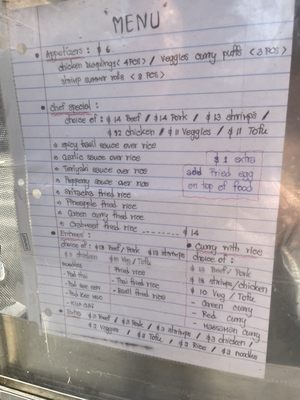 "MENU"
Appetizers : $ 6
chicken Dumplings (4 PCS) / Veggies curry puffs (3 PCS)
shrimp summer rolls (2 PCS)
Chef special :
choice of : $14 Beef / $14 Pork / $13 shrimps /
$12 chicken / $11 Veggies / $11 Tofu
spicy basil sauce over rice
Garlic sauce over rice
$2 extra
Teriyaki sauce over rice
add Fried egg
Peppery sauce over rice
on top of food
Sriracha fried rice
Pineapple fried rice
Green curry fried rice
Crabmeat fried rice -------- $14
Entrees :
Curry with rice
choice of : $13 Beef / Pork $13 shrimps
choice of :
chicken $10 Veg / Tofu
Beef / Pork
noodles
Fried rice
shrimps / chicken
- Pad thai
- Thai fried rice
$10 Veg / Tofu
- Pad see eew
- Basil fried rice
- Green curry
- Pad kee mao
- Red curry
- Massaman curry
Extra $3 Beef / $3 Pork / $3 shrimps / $3 chicken /
$2 Veggies / $2 Tofu / $2 Rice / $2 noodles